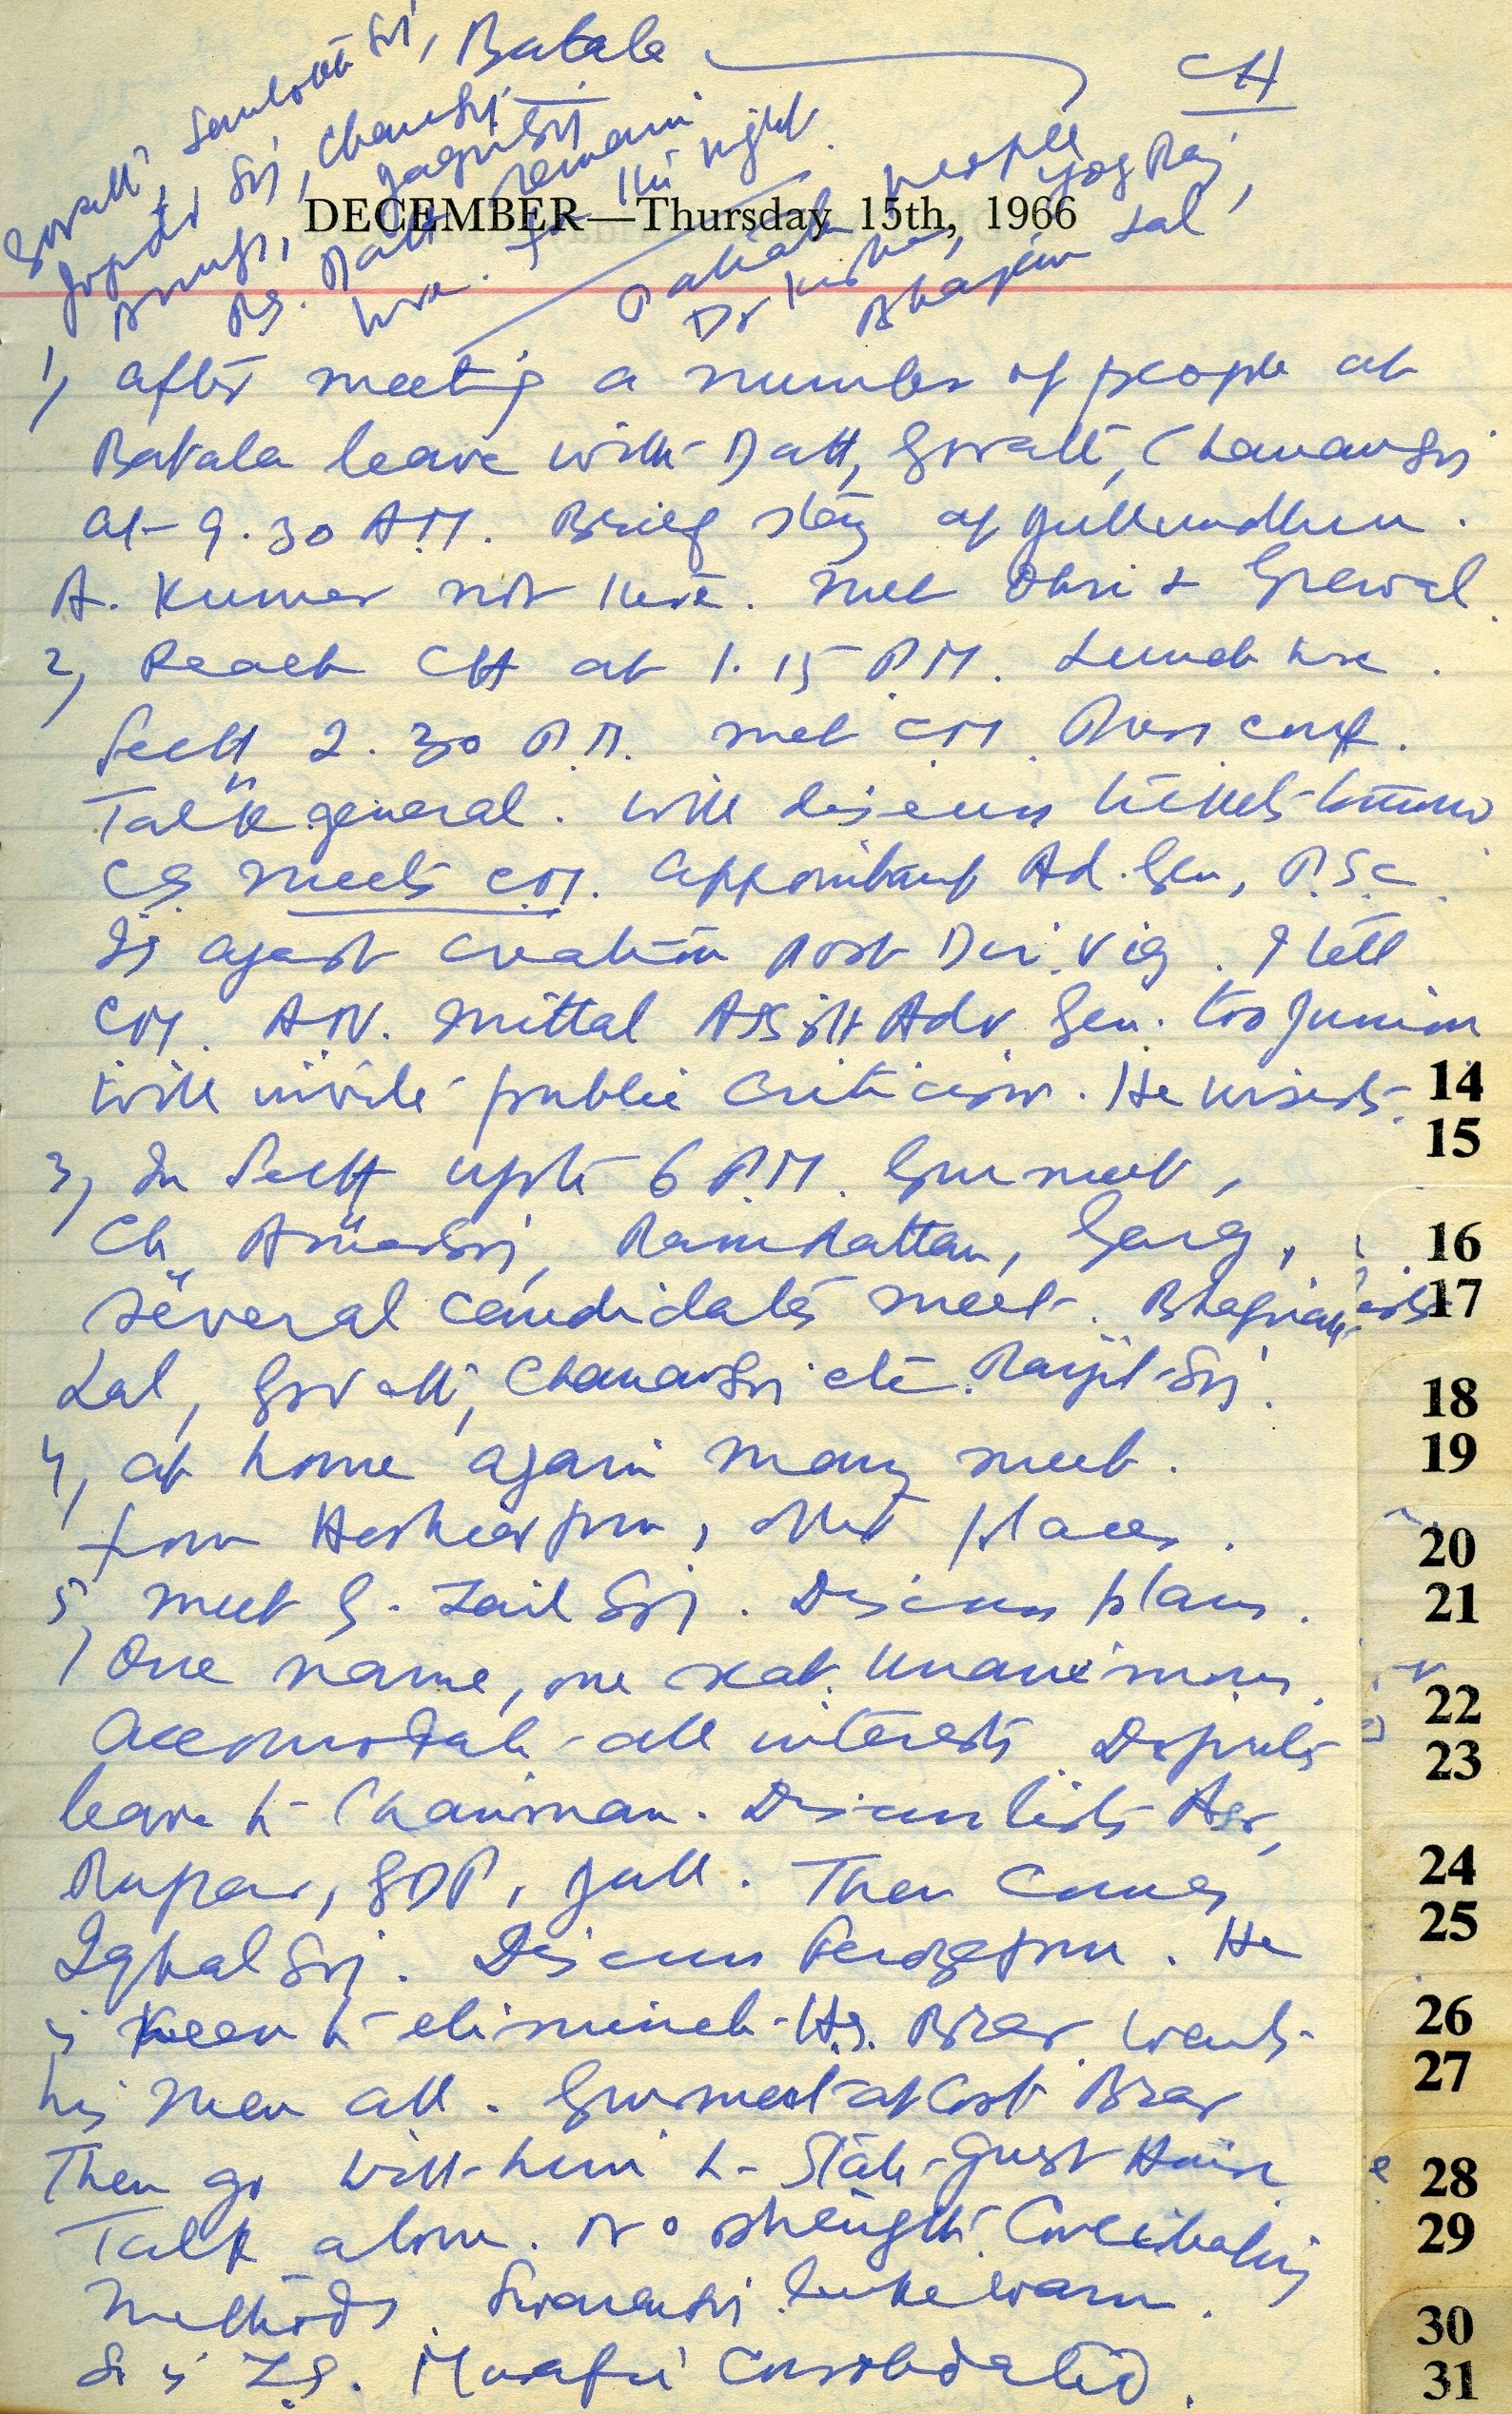 Batala
CH
Santokh Sj,
Gorakh,
Sj, Chanan Sj
Jagjit Sj
remain
here. for the night.
Patiala people
Yog Raj,
Dr Krishan,
Bhajan Lal
DECEMBER—Thursday 15th, 1966
1, After meeting a number of people at
Batala leave with Datt, Gorakh, Chanan Sj
at 9.30 A.M. Brief stay at Jullundhur.
A. Kumar not there. Met Ohri & Grewal.
2, Reach CH at 1.15 P.M. Lunch here.
Sectt 2.30 P.M. met CM. Press conf.
Talk general. Will discuss tickets tomorrow
CS meets CM. appointment Ad. Gen, P.S.C.
Is against creation post Dir. Vig. I tell
CM. A.N. Mittal Asstt Adv. Gen. too junior
will invite public criticism. He insists.
3, In Sectt upto 6 P.M. Gurmeet,
Ch Amar Sj, Ram Rattan, Garg,
several candidates meet. Bhagwan
Lal, Gorakh, Chanan Sj etc. Ranjit Sj.
4, at home again many meet.
from Hoshiarpur, other places.
5, meet G. Zail Sj. Discuss plans.
One name, one seat. Unanimous.
Accomodate all interests Dispute
leave to Chairman. Discuss lists Asr,
Rupar, GDP, Jull. Then comes
Iqbal Sj. Discuss Ferozepur. He
is keen to eliminate Hs. Brar. wants
his men all. Gurmeet at cost Brar
Then go with him to State Guest House
Talk alone. No strength. Conciliatory
methods. Swaran Sj lukewarm.
So is Z.S. Musafir consolidated.
14
15
16
17
18
19
20
21
22
23
24
25
26
27
28
29
30
31